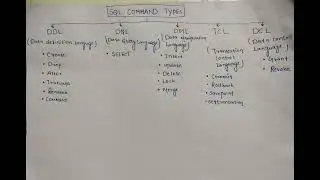 SQL COMMAND TYPES
DDL
(Data definition language)
• Create
• Drop
• Alter
• Truncate
• Rename
• Comment
DQL
(Data Query Language)
• SELECT
DML
(Data Manipulation Language)
• Insert
• Update
• Delete
• Lock
• Merge
TCL
(Transaction Control Language)
• Commit
• Rollback
• Savepoint
DCL
(Data Control Language)
• Grant
• Revoke